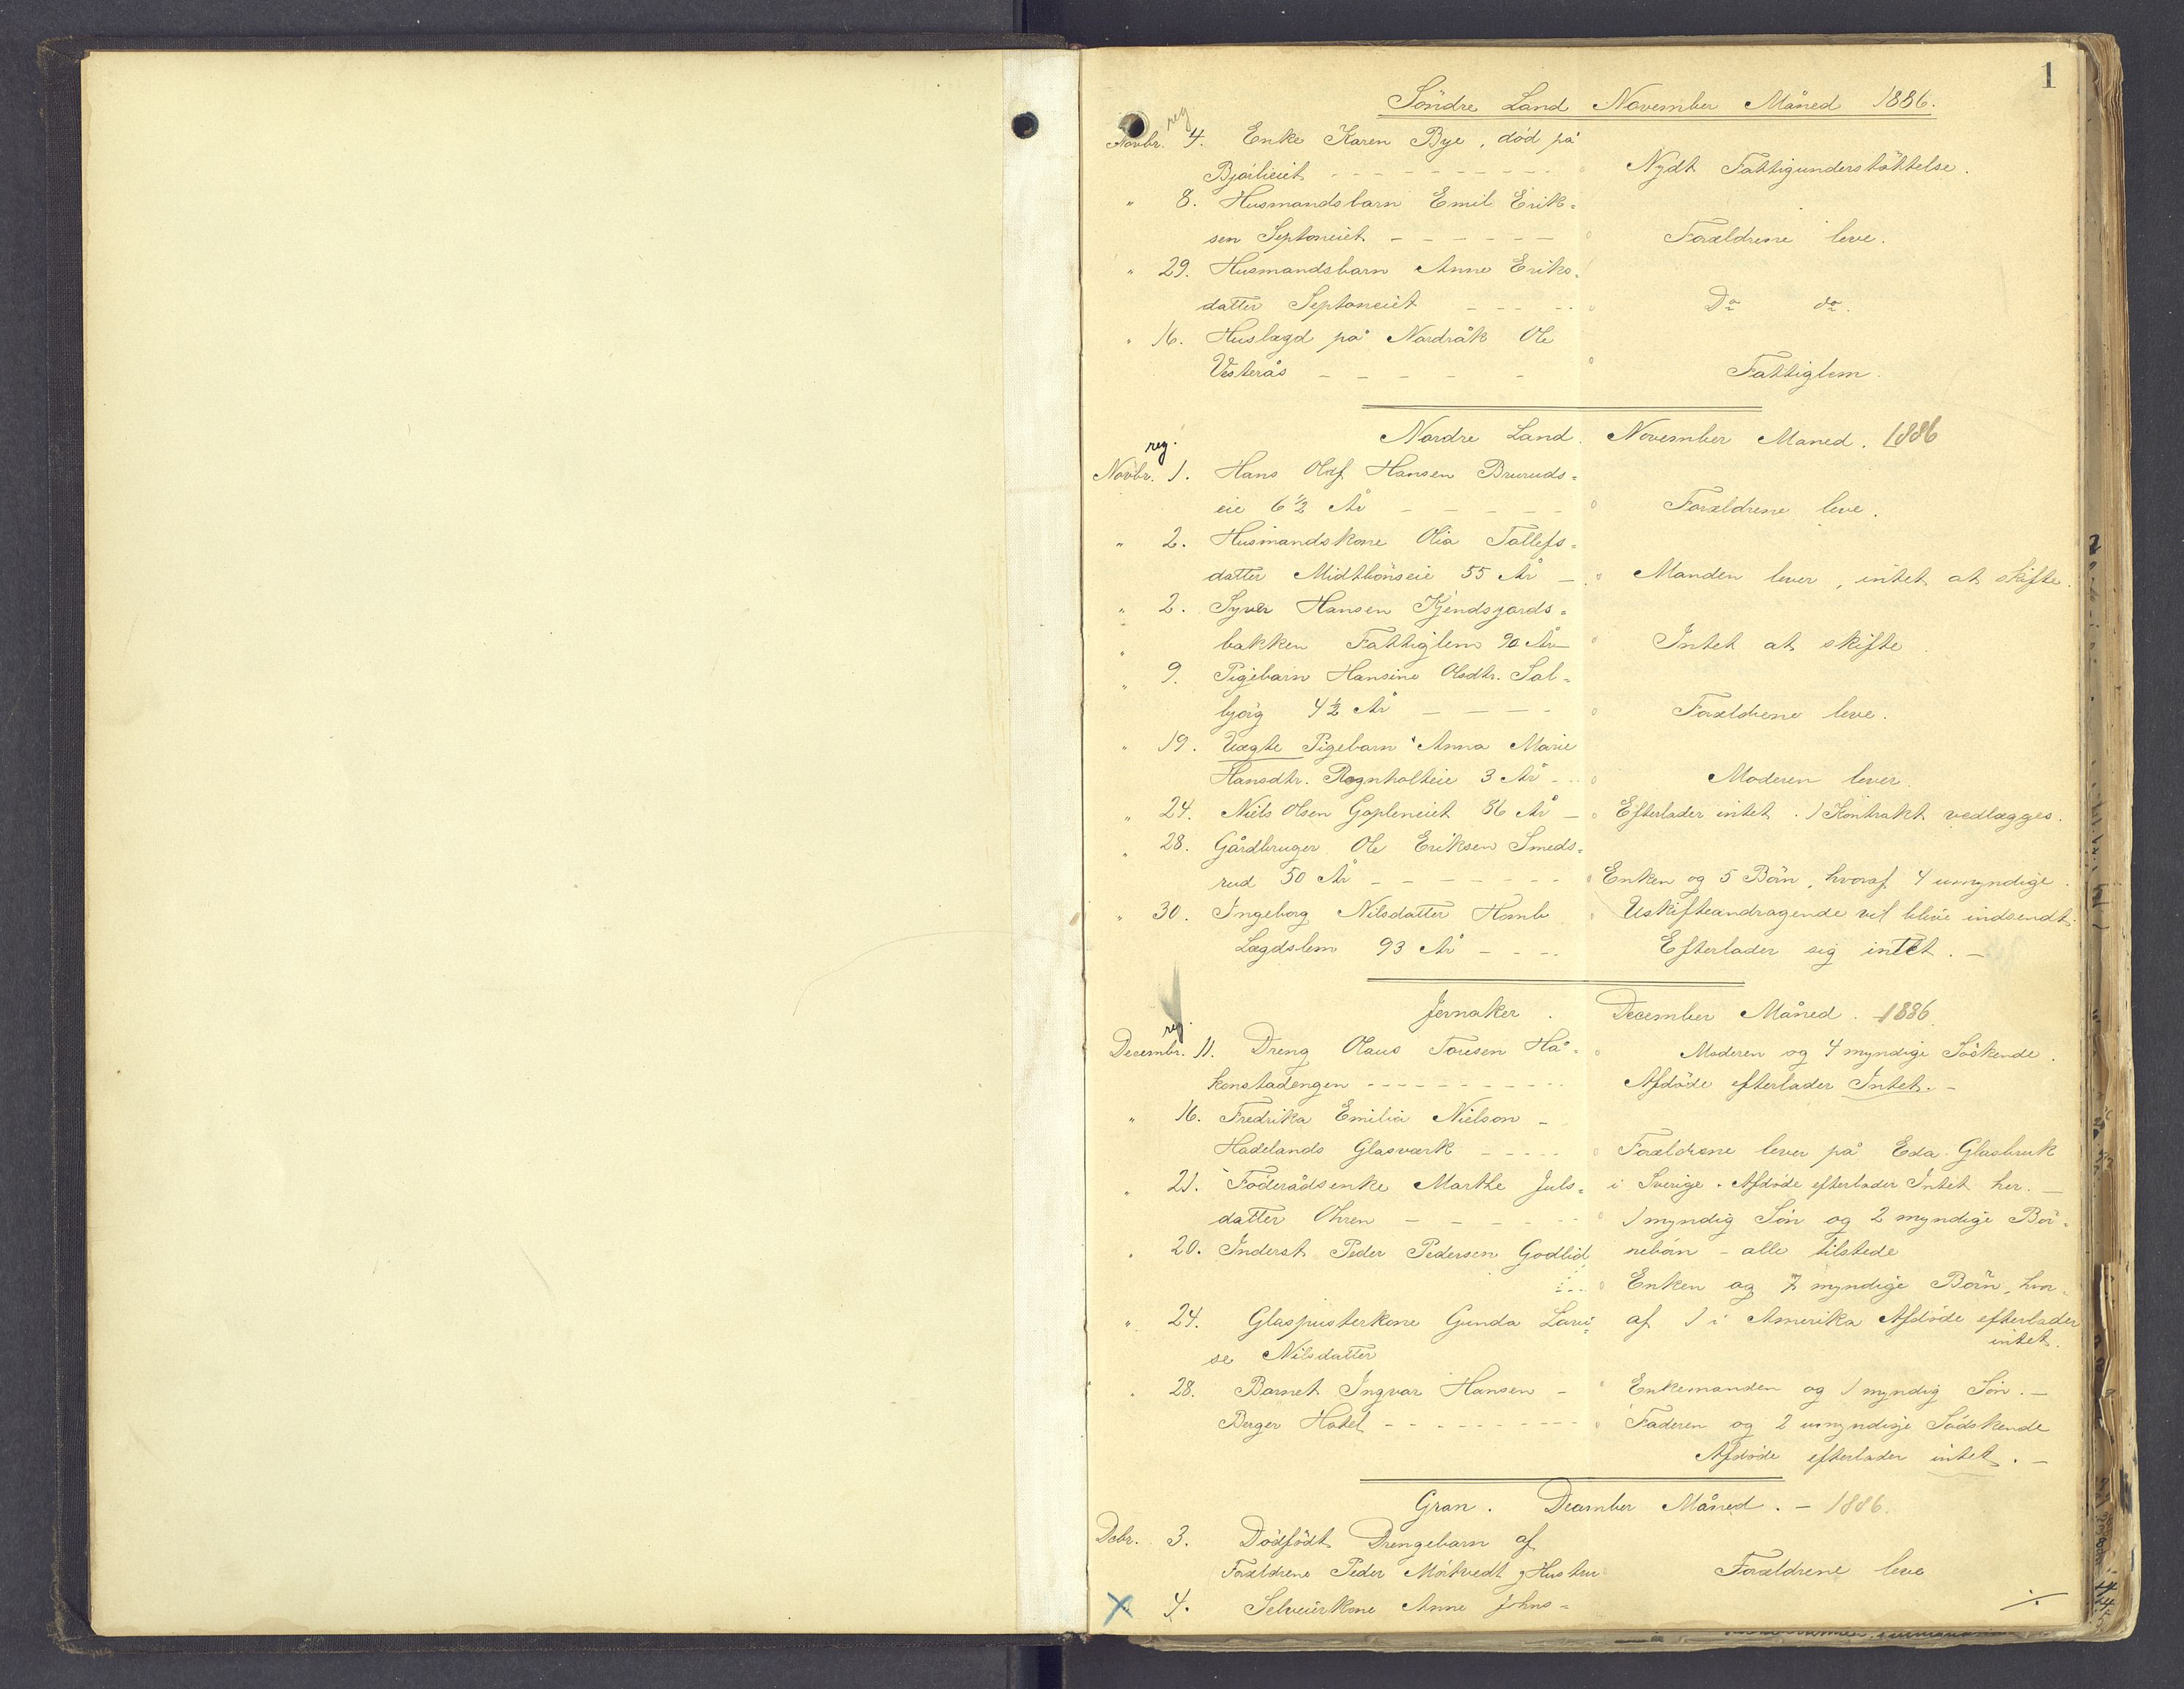 1
Söndre Land November Måned 1886.
reg
Novbr. 4. Enke Karen Bye, död på
Bjørlieiet - - - - - Nydt Fattigunderstöttelse.
" 8. Husmandsbarn Emil Erik=
sen Septoneiet - - - - - Forældrene leve.
" 29. Husmandsbarn Anne Eriks=
datter Septoneiet - - - - Do do.
" 16. Huslægd på Nordråk Ole
Vesterås - - - - - Fattiglem.
Nordre Land. November Maned. 1886
reg.
Novbr. 1. Hans Olaf Hansen Bruruds=
eie 6½ År - - - - - Forældrene leve.
" 2. Husmandskone Olia Tollefs=
datter Midtbönseie 55 År - Manden lever, intet at skifte.
" 2. Syver Hansen Kjendsgards=
" bakken Fattiglem 90 År Intet at skifte.
" 9. Pigebarn Hansine Olsdtr. Sol=
björg 4½ År - - - - Forældrene leve.
" 19. Uægte Pigebarn Anna Marie
Hansdtr. Rognholteie 3 År - - Moderen lever.
" 24. Niels Olsen Gapleneiet 86 År - Efterlader intet. 1 Kontrakt vedlægges.
" 28. Gårdbruger Ole Eriksen Smeds=
rud 50 År - - - - - Enken og 5 Börn, hvoraf 4 umyndige.
" 30. Ingeborg Nilsdatter Homb Uskifteandragende vil blive indsendt.
Lægdslem 93 År - - - Efterlader sig intet. -
Jevnaker. December Måned. 1886.
reg.
Decembr. 11. Dreng Olaus Toresen Hå= Moderen og 4 myndige Söskende.
konstadengen - - - - - Afdöde efterlader Intet. -
" 16. Fredrika Emilia Nielson -
Hadelands Glasværk - - - - Forældrene lever på Eda Glasbruk
" 21. Föderådsenke Marthe Juls= i Sverige. Afdöde efterlader Intet her. -
datter Ohren - - - - - 1 myndig Sön og 2 myndige Bör=
" 20. Inderst Peder Pedersen Godlid nebörn - alle tilstede
- - - Enken og 7 myndige Börn, hvor=
" 24. Glaspusterkone Gunda Lovi= af 1 i Amerika Afdöde efterlader
intet.
se Nilsdatter
" 28. Barnet Ingvar Hansen - Enkemanden og 1 myndig Sön. -
Berger Hotel - - - - - Faderen og 2 umyndige Södskende
Afdöde efterlader intet. -
Gran. December Måned. - 1886.
Dcbr. 3. Dödfödt Drengebarn af
Forældrene Peder Mörkvedt og Hustru Forældrene leve
X 4. Selveierkone Anne Johns=